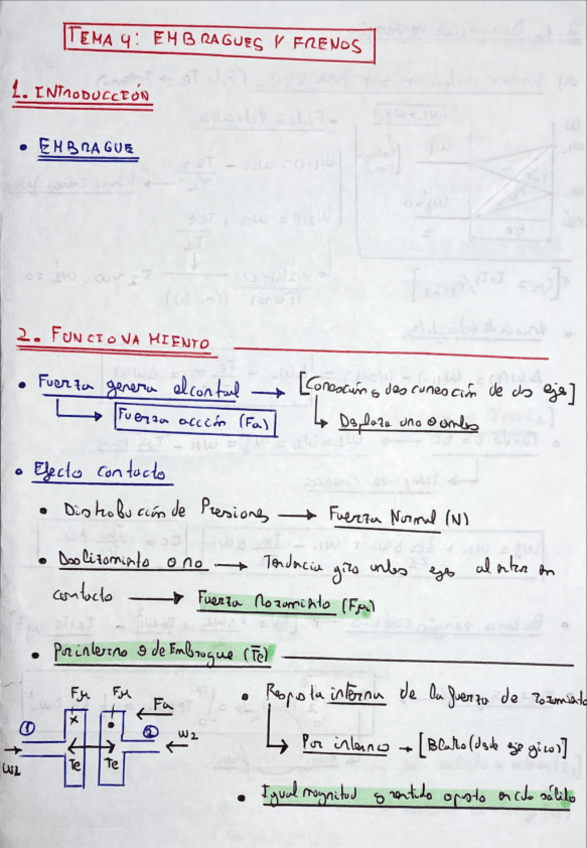 TEMA 4: EMBRAGUES Y FRENOS
1. INTRODUCCIÓN
• EMBRAGUE
2. FUNCIONAMIENTO
• Fuerza genera el contacto → [Conexión o desconexión de dos ejes]
↳ Fuerza acción (Fa)
↳ Desplaza uno o ambos
• Efecto contacto
• Distribución de Presiones → Fuerza Normal (N)
• Deslizamiento o no → Tendencia giro ambos ejes al entrar en
contacto → Fuerza Rozamiento (Fμ)
• Par interno o de Embrague (Te)
Fμ Fμ Fa
① x • ②
ω1 Te Te ω2
• Respuesta interna de la fuerza de rozamiento
↳ Par interno → [ (desde eje giro)]
• Igual magnitud y sentido opuesto en cada sólido